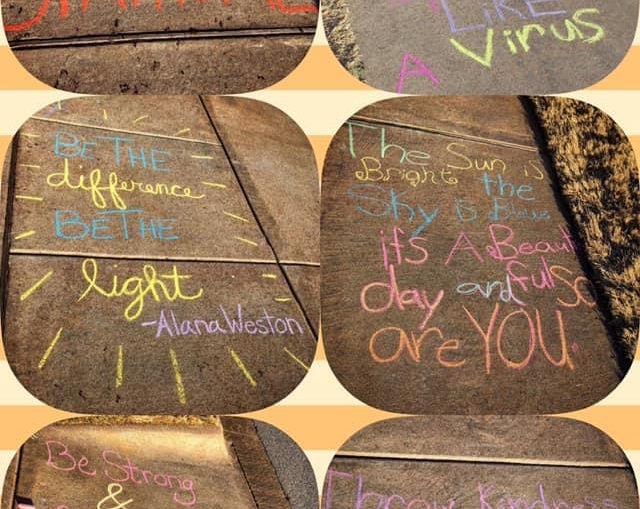 LIKE
A Virus
BE THE
difference
BE THE
light
-Alana Weston
The Sun is
Bright the
Sky is Blue
its A Beauti
day and ful So
are YOU.
Be Strong
&
Throw Kindness